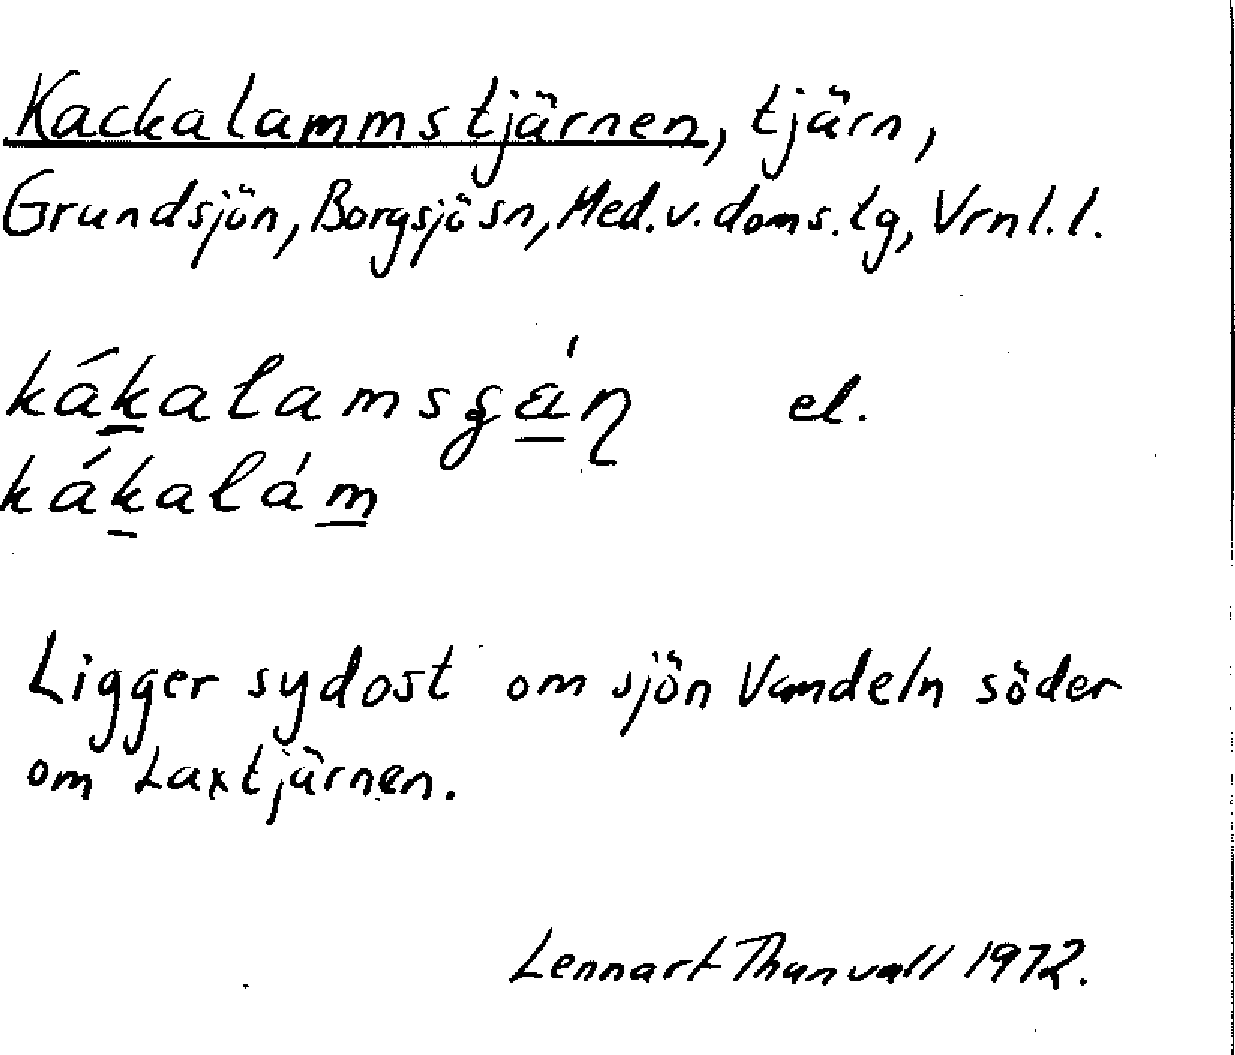 Kackalammstjärnen, tjärn,
Grundsjön, Borgsjö sn, Med.v.doms.lg, Vrnl.l.
el.
Ligger sydost om sjön Vamdeln söder
om Laxtjärnen.
Lennart Thunvall 1972.